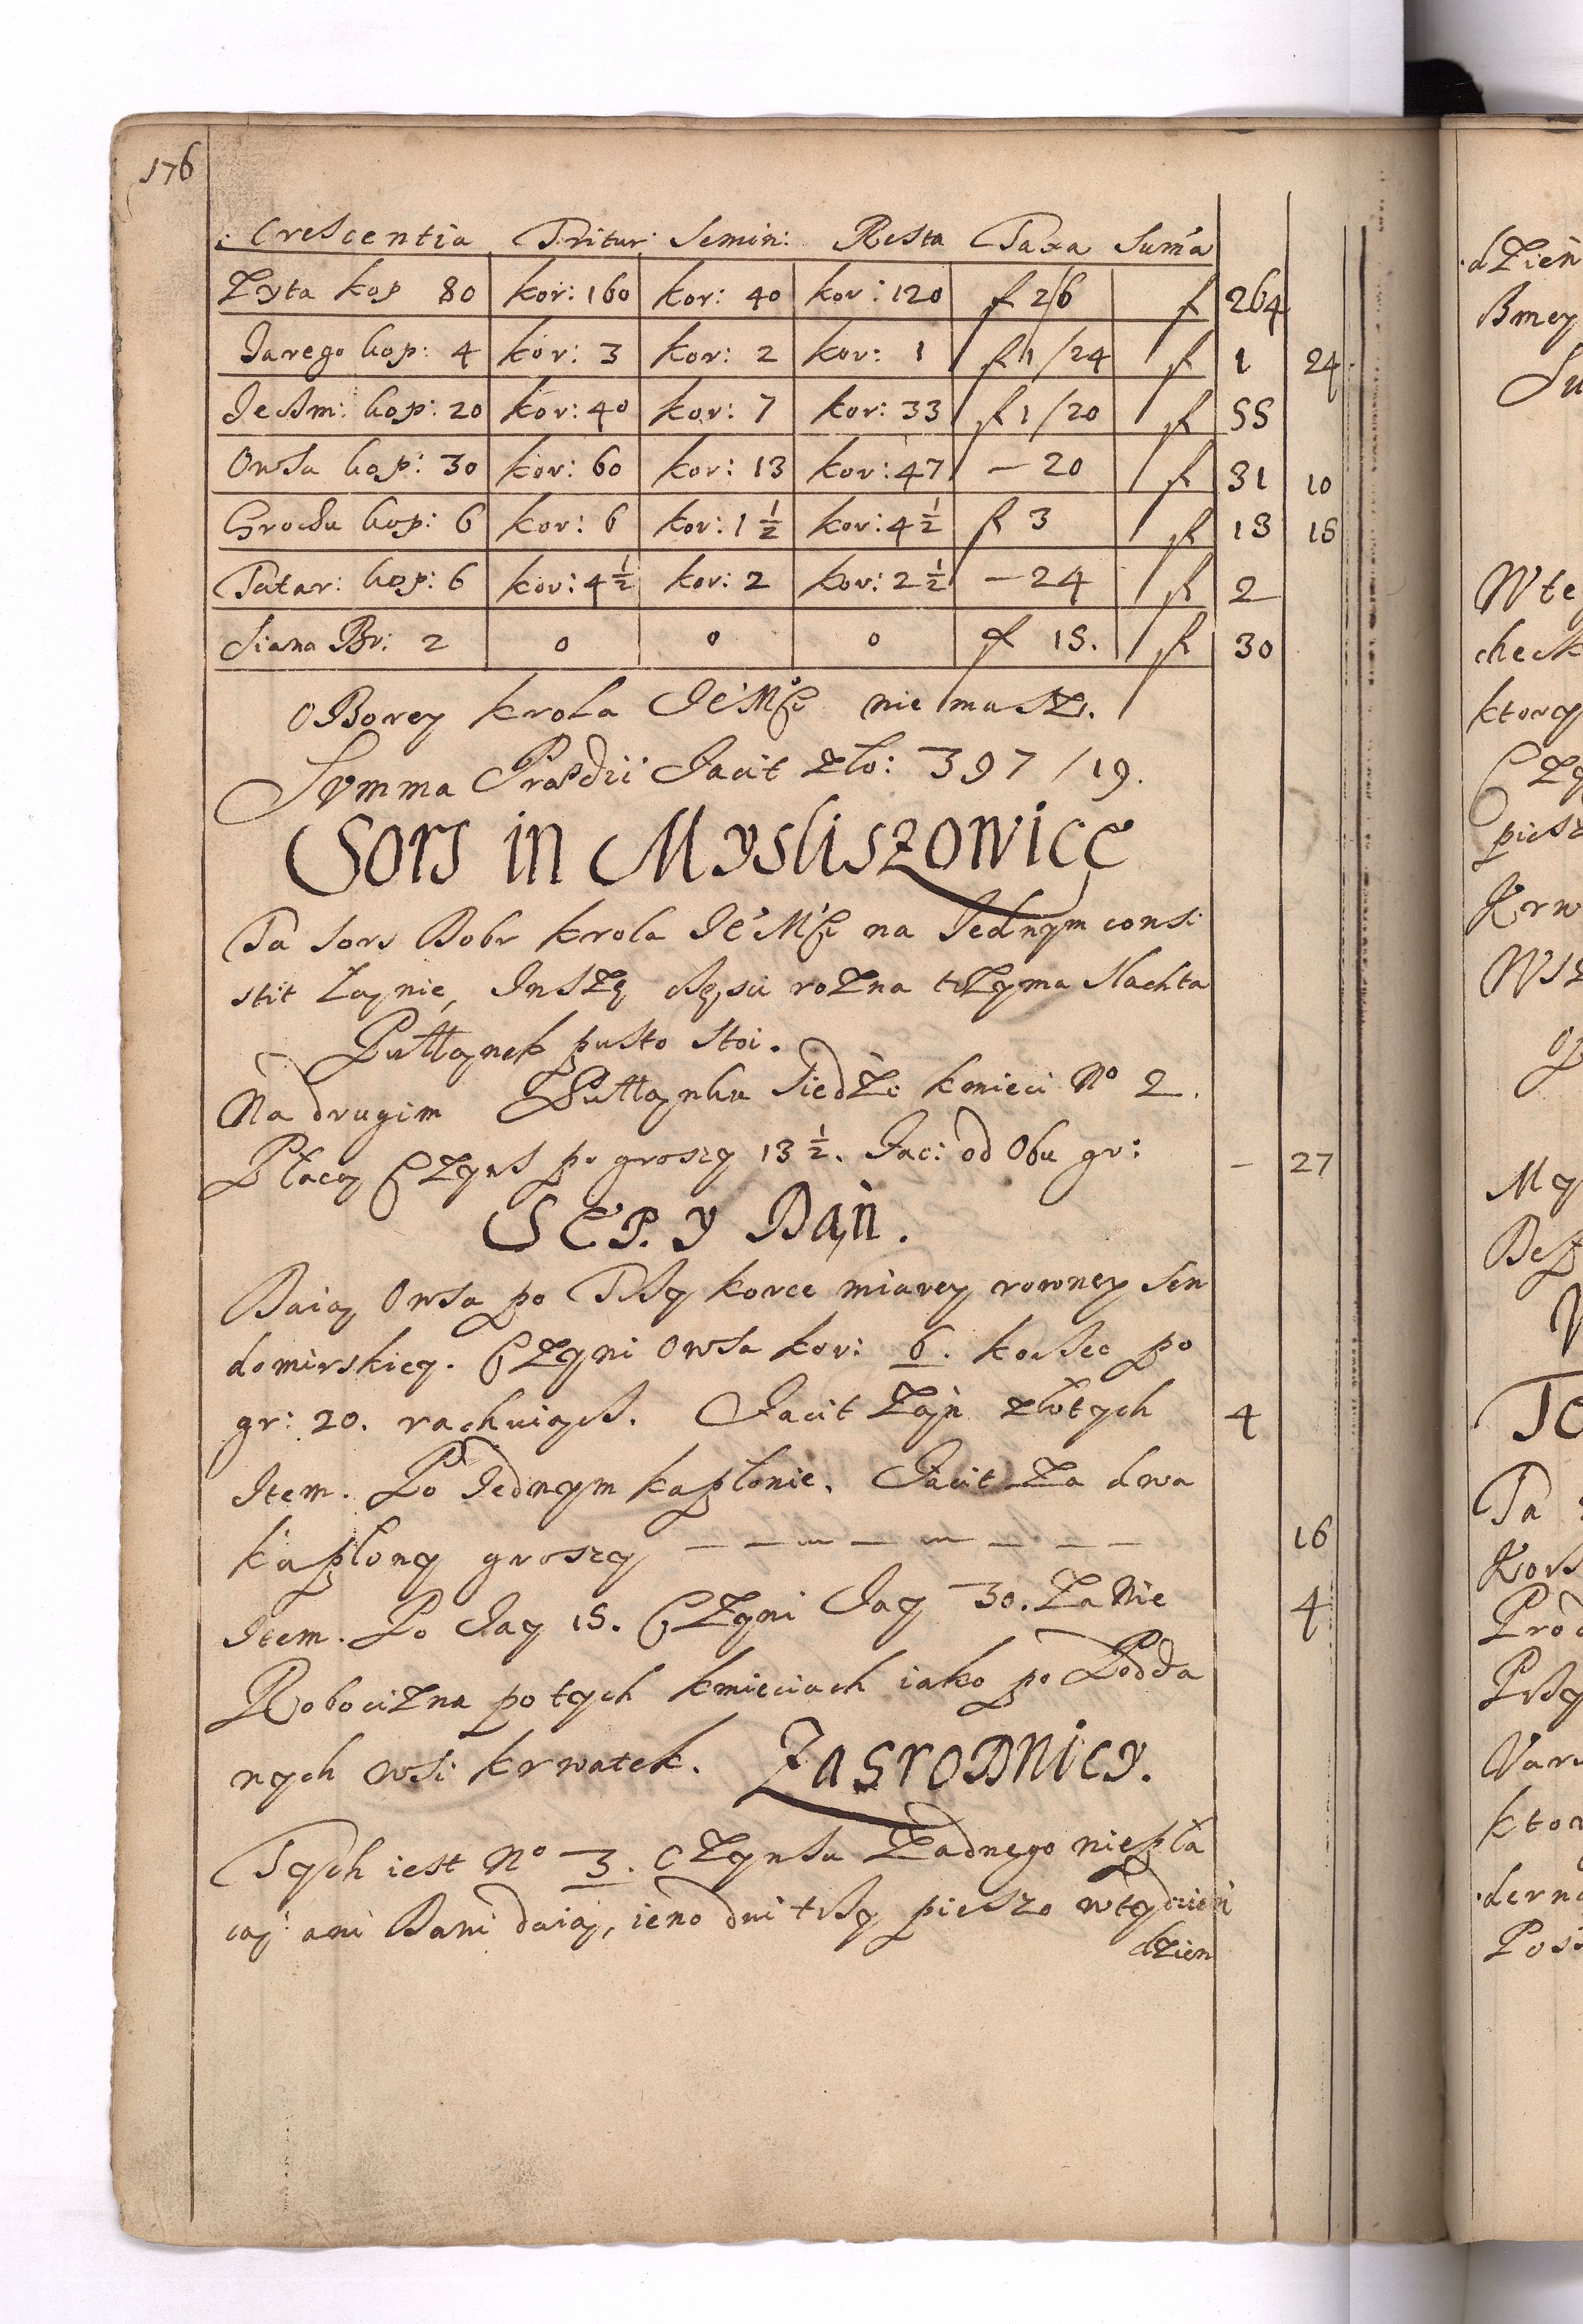 176
Crescentia Tritur: Semin: Resta Taxa Suma
Zyta kop 80 kor: 160 kor: 40 kor: 120 f 2/6 f 264
Jarego kop: 4 kor: 3 kor: 2 kor: 1 f 1/24 f 1 24
Jeczm: kop: 20 kor: 40 kor: 7 kor: 33 f 1/20 f 55
Owsa kop: 30 kor: 60 kor: 13 kor: 47 – 20 f 31 10
Grochu kop: 6 kor: 6 kor: 1 ½ kor: 4 ½ f 3 f 13 15
Tatar: kop: 6 kor: 4 ½ kor: 2 kor: 2 ½ – 24 f 2
Siana Br: 2 0 0 0 f 15. f 30
Oborey krola Je° Mśći nie masz.
Summa Prædii facit zło: 397/19.
Sors in Mysliszowice
Ta sors Dobr krola Je° Mśći na Jednym consi
stit Łanie, Insze częsci rozna trzyma slachta
Pułłanek pusto stoi.
Na drugim Pułłanku siedzi kmieci N° 2.
Płacą Czyns po groszy 13 ½. Fac: od Obu gr: – 27
SEP. y Dań.
Daią Owsa po Trzy korce miarey rowney sen
domirskiey. Czyni Owsa kor: 6. korzec po
gr: 20. rachuiąc. Facit Zań złotych 4
Item. Po Jednym kapłonie. Facit Za dwa
kapłony groszy 16
Item. Po Jay 15. Czyni Jay 30. Za Nie 4
Robocizna po tych kmieciach iako po Podda
nych wsi krwatek. Zagrodnicy.
Tych iest N° 3. Czynsu Zadnego niepła
cą ani Dani daią, ieno dni trzy pieszo wtydzień
dzien